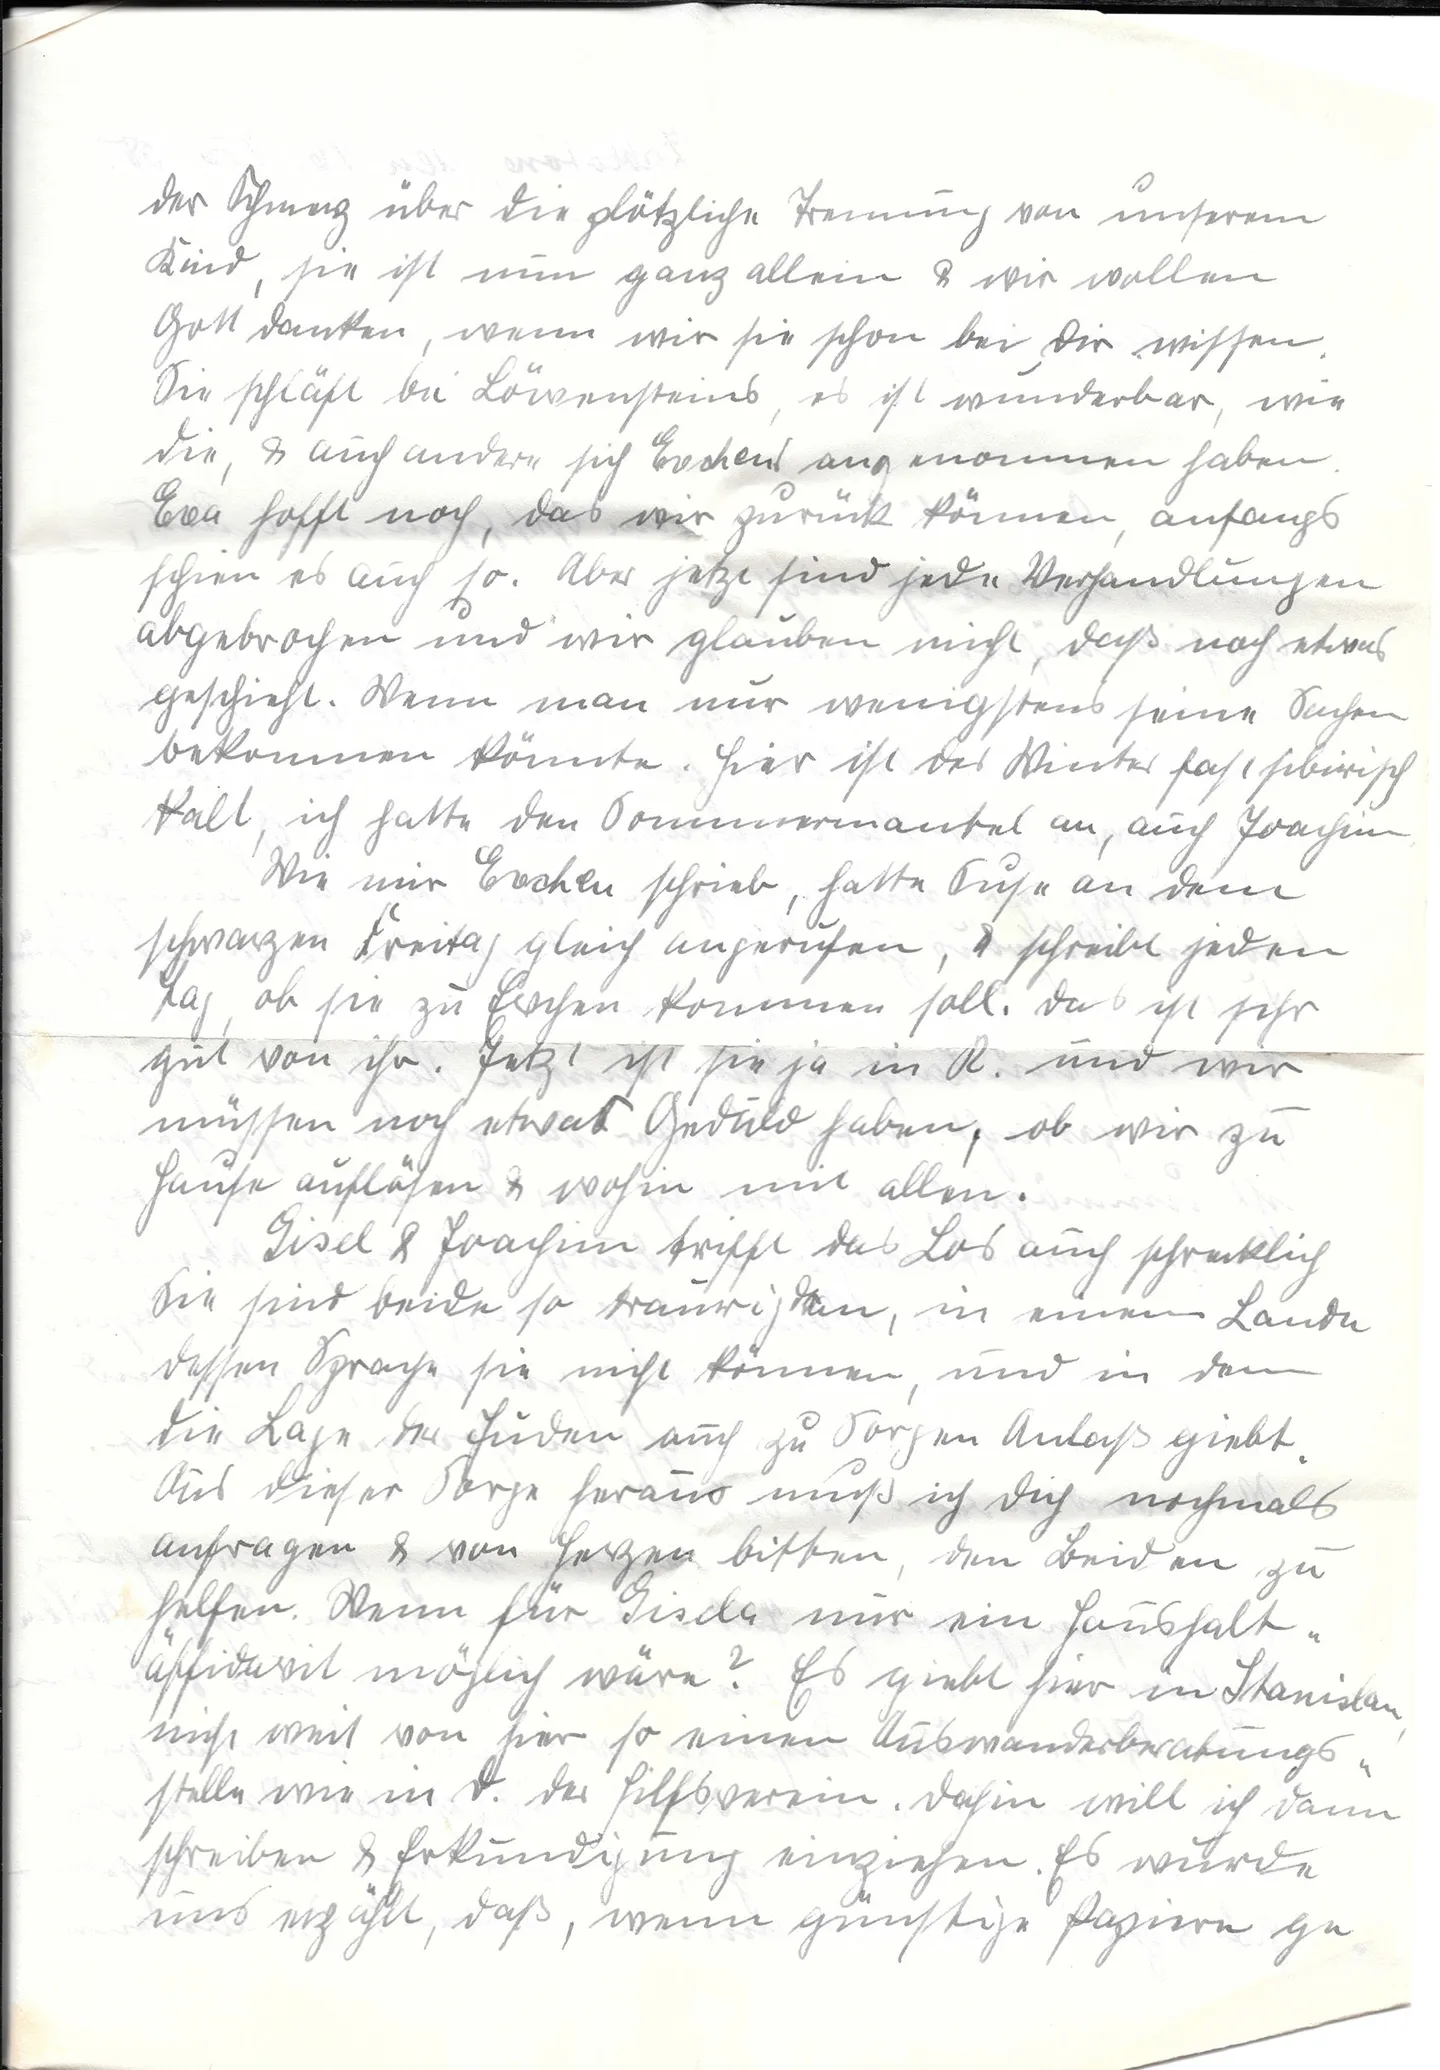 der Schmerz über die plötzliche Trennung von unserem
Kind, sie ist nun ganz allein & wir wollen
Gott danken, wenn wir sie schon bei Dir wissen.
Sie schläft bei Löwensteins, es ist wunderbar, wie
die, & auch andere sich Evchens angenommen haben.
Eva hofft noch, das wir zurück können, anfangs
schien es auch so. Aber jetzt sind jede Verhandlungen
abgebrochen und wir glauben nicht, daß noch etwas
geschieht. Wenn man nur wenigstens seine Sachen
bekommen könnte. Hier ist der Winter fast sibirisch
kalt, ich hatte den Sommermantel an, auch Joachim.
Wie mir Evchen schrieb, hatte Suse an dem
schwarzen Freitag gleich angerufen, & schreibt jeden
Tag, ob sie zu Evchen kommen soll. Das ist sehr
gut von ihr. Jetzt ist sie ja in R. und wir
müssen noch etwas Geduld haben, ob wir zu
Hause auflösen & wohin mit allen.
Gisel & Joachim trifft das Los auch schrecklich
Sie sind beide so traurig dran, in einem Lande
dessen Sprache sie nicht können, und in dem
die Lage der Juden auch zu Sorgen Anlaß giebt.
Aus dieser Sorge heraus muß ich Dich nochmals
anfragen & von Herzen bitten, den Beiden zu
helfen. Wenn für Gisela nur ein Haushalt„
affidavit möglich wäre? Es giebt hier in Stanislau,
nicht weit von hier so einen Auswanderberatungs„
stelle wie in D. der Hilfsverein. Dahin will ich dann
schreiben & Erkundigung einziehen. Es wurde
uns erzählt, daß, wenn günstige Papiere ge